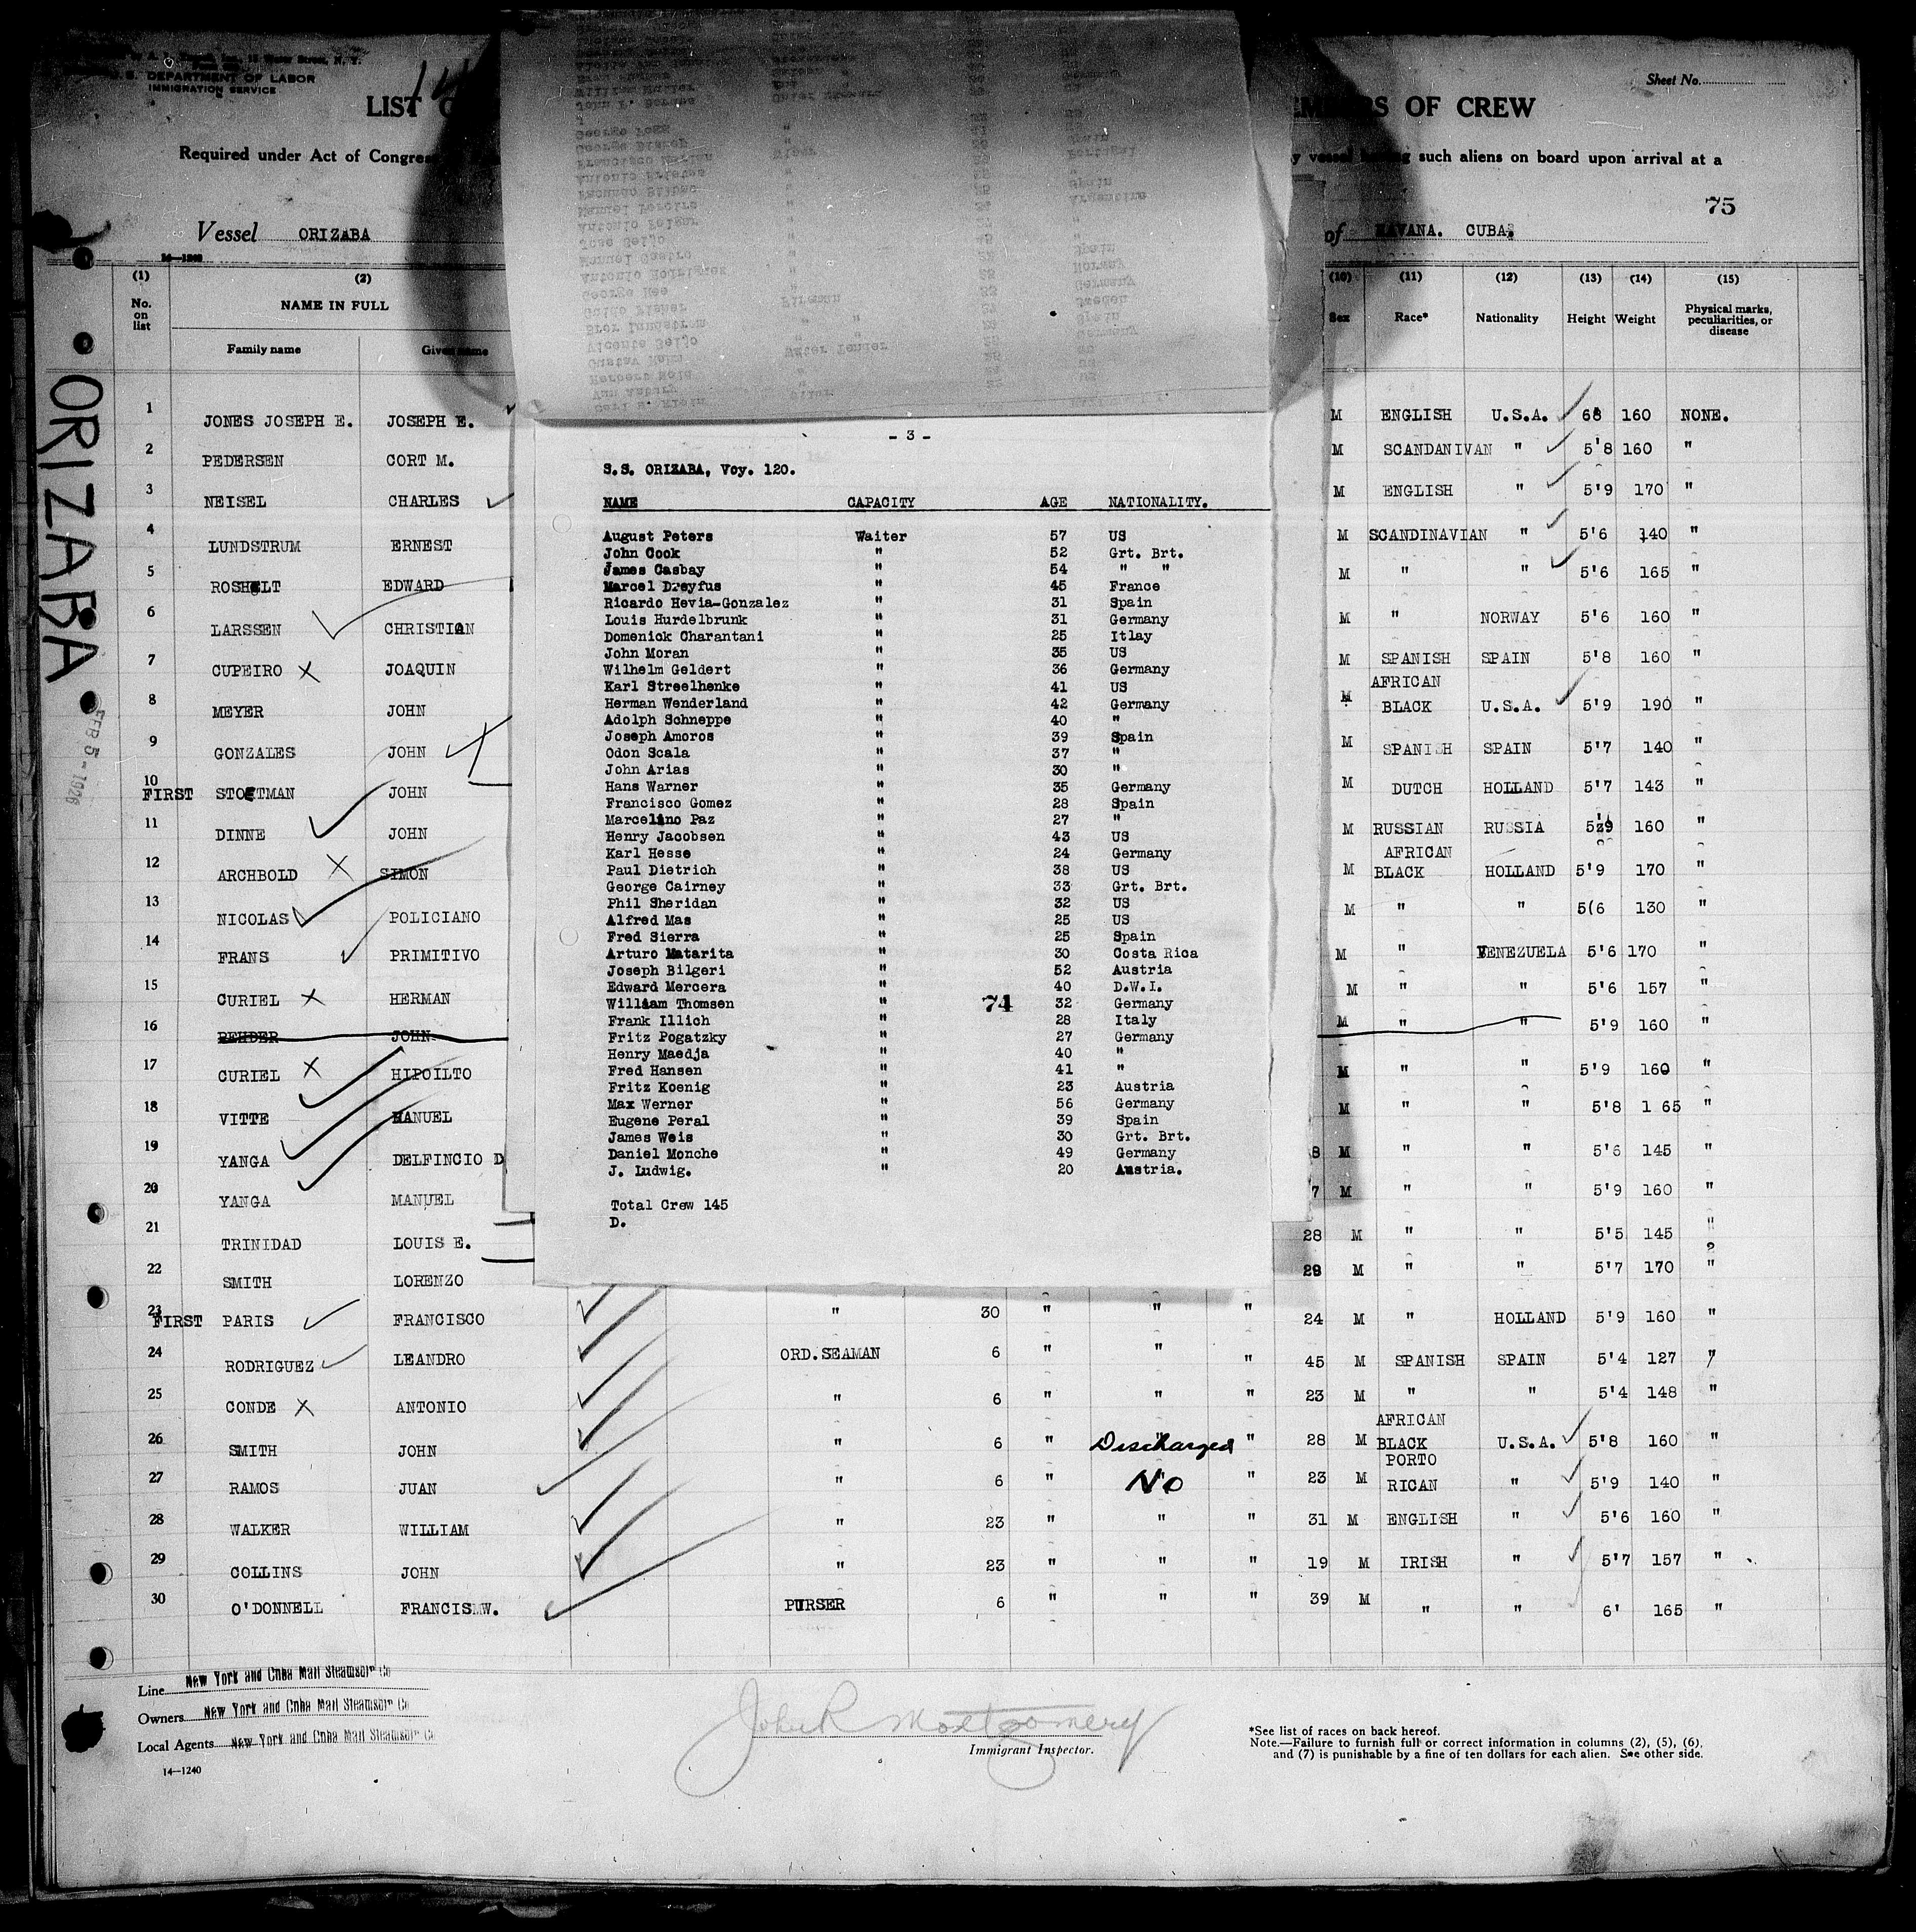 U.S. DEPARTMENT OF LABOR
IMMIGRATION SERVICE
Sheet No.
LIST OF CREW
Required under Act of such aliens on board upon arrival at a
75
Vessel ORIZABA of HAVANA. CUBA.
(1) (2) (10) (11) (12) (13) (14) (15)
No. on list NAME IN FULL Sex Race* Nationality Height Weight Physical marks, peculiarities, or disease
Family name Given name
ORIZABA
FEB 5 - 1926
1 JONES JOSEPH E. JOSEPH E. M ENGLISH U.S.A. 68 160 NONE.
2 PEDERSEN CORT M. M SCANDANIVAN " 5'8 160 "
3 NEISEL CHARLES M ENGLISH " 5'9 170 "
4 LUNDSTRUM ERNEST M SCANDINAVIAN " 5'6 140 "
5 ROSHOLT EDWARD M " " 5'6 165 "
6 LARSSEN CHRISTIAN M " NORWAY 5'6 160 "
7 CUPEIRO JOAQUIN M SPANISH SPAIN 5'8 160 "
8 MEYER JOHN M AFRICAN BLACK U.S.A. 5'9 190 "
9 GONZALES JOHN M SPANISH SPAIN 5'7 140 "
10 FIRST STOETMAN JOHN M DUTCH HOLLAND 5'7 143 "
11 DINNE JOHN M RUSSIAN RUSSIA 5'9 160 "
12 ARCHBOLD SIMON M AFRICAN BLACK HOLLAND 5'9 170 "
13 NICOLAS POLICIANO M " " 5(6 130 "
14 FRANS PRIMITIVO M " VENEZUELA 5'6 170 "
15 CURIEL HERMAN M " " 5'6 157 "
16 REHDER JOHN M " " 5'9 160 "
17 CURIEL HIPOILTO M " " 5'9 160 "
18 VITTE MANUEL M " " 5'8 1 65 "
19 YANGA DELFINCIO D 8 M " " 5'6 145 "
20 YANGA MANUEL 7 M " " 5'9 160 "
21 TRINIDAD LOUIS E. 28 M " " 5'5 145 "
22 SMITH LORENZO 29 M " " 5'7 170 "
23 FIRST PARIS FRANCISCO " 30 " " " 24 M " HOLLAND 5'9 160 "
24 RODRIGUEZ LEANDRO ORD.SEAMAN 6 " " " 45 M SPANISH SPAIN 5'4 127 "
25 CONDE ANTONIO " 6 " " " 23 M " " 5'4 148 "
26 SMITH JOHN " 6 " Discharged " 28 M AFRICAN BLACK U.S.A. 5'8 160 "
27 RAMOS JUAN " 6 " No " 23 M PORTO RICAN " 5'9 140 "
28 WALKER WILLIAM " 23 " " " 31 M ENGLISH " 5'6 160 "
29 COLLINS JOHN " 23 " " " 19 M IRISH " 5'7 157 "
30 O'DONNELL FRANCIS W. PURSER 6 " " " 39 M " " 6' 165 "
- 3 -
S.S. ORIZABA, Voy. 120.
NAME CAPACITY AGE NATIONALITY.
August Peters Waiter 57 US
John Cook " 52 Grt. Brt.
James Casbay " 54 " "
Marcel Dreyfus " 45 France
Ricardo Hevia-Gonzalez " 31 Spain
Louis Hurdelbrunk " 31 Germany
Domenick Charantani " 25 Itlay
John Moran " 35 US
Wilhelm Geldert " 36 Germany
Karl Streelhenke " 41 US
Herman Wenderland " 42 Germany
Adolph Schneppe " 40 "
Joseph Amoros " 39 Spain
Odon Scala " 37 "
John Arias " 30 "
Hans Warner " 35 Germany
Francisco Gomez " 28 Spain
Marcelino Paz " 27 "
Henry Jacobsen " 43 US
Karl Hesse " 24 Germany
Paul Dietrich " 38 US
George Cairney " 33 Grt. Brt.
Phil Sheridan " 32 US
Alfred Mas " 25 US
Fred Sierra " 25 Spain
Arturo Matarita " 30 Costa Rica
Joseph Bilgeri " 52 Austria
Edward Mercera " 40 D.W.I.
William Thomsen " 74 32 Germany
Frank Illich " 28 Italy
Fritz Pogatzky " 27 Germany
Henry Maedja " 40 "
Fred Hansen " 41 "
Fritz Koenig " 23 Austria
Max Werner " 56 Germany
Eugene Peral " 39 Spain
James Weis " 30 Grt. Brt.
Daniel Monche " 49 Germany
J. Ludwig. " 20 Austria.
Total Crew 145
D.
Line New York and Cuba Mail Steamship Co
Owners New York and Cuba Mail Steamship Co
Local Agents New York and Cuba Mail Steamship Co
14—1240
John R Montgomery
Immigrant Inspector.
*See list of races on back hereof.
Note.—Failure to furnish full or correct information in columns (2), (5), (6),
and (7) is punishable by a fine of ten dollars for each alien. See other side.